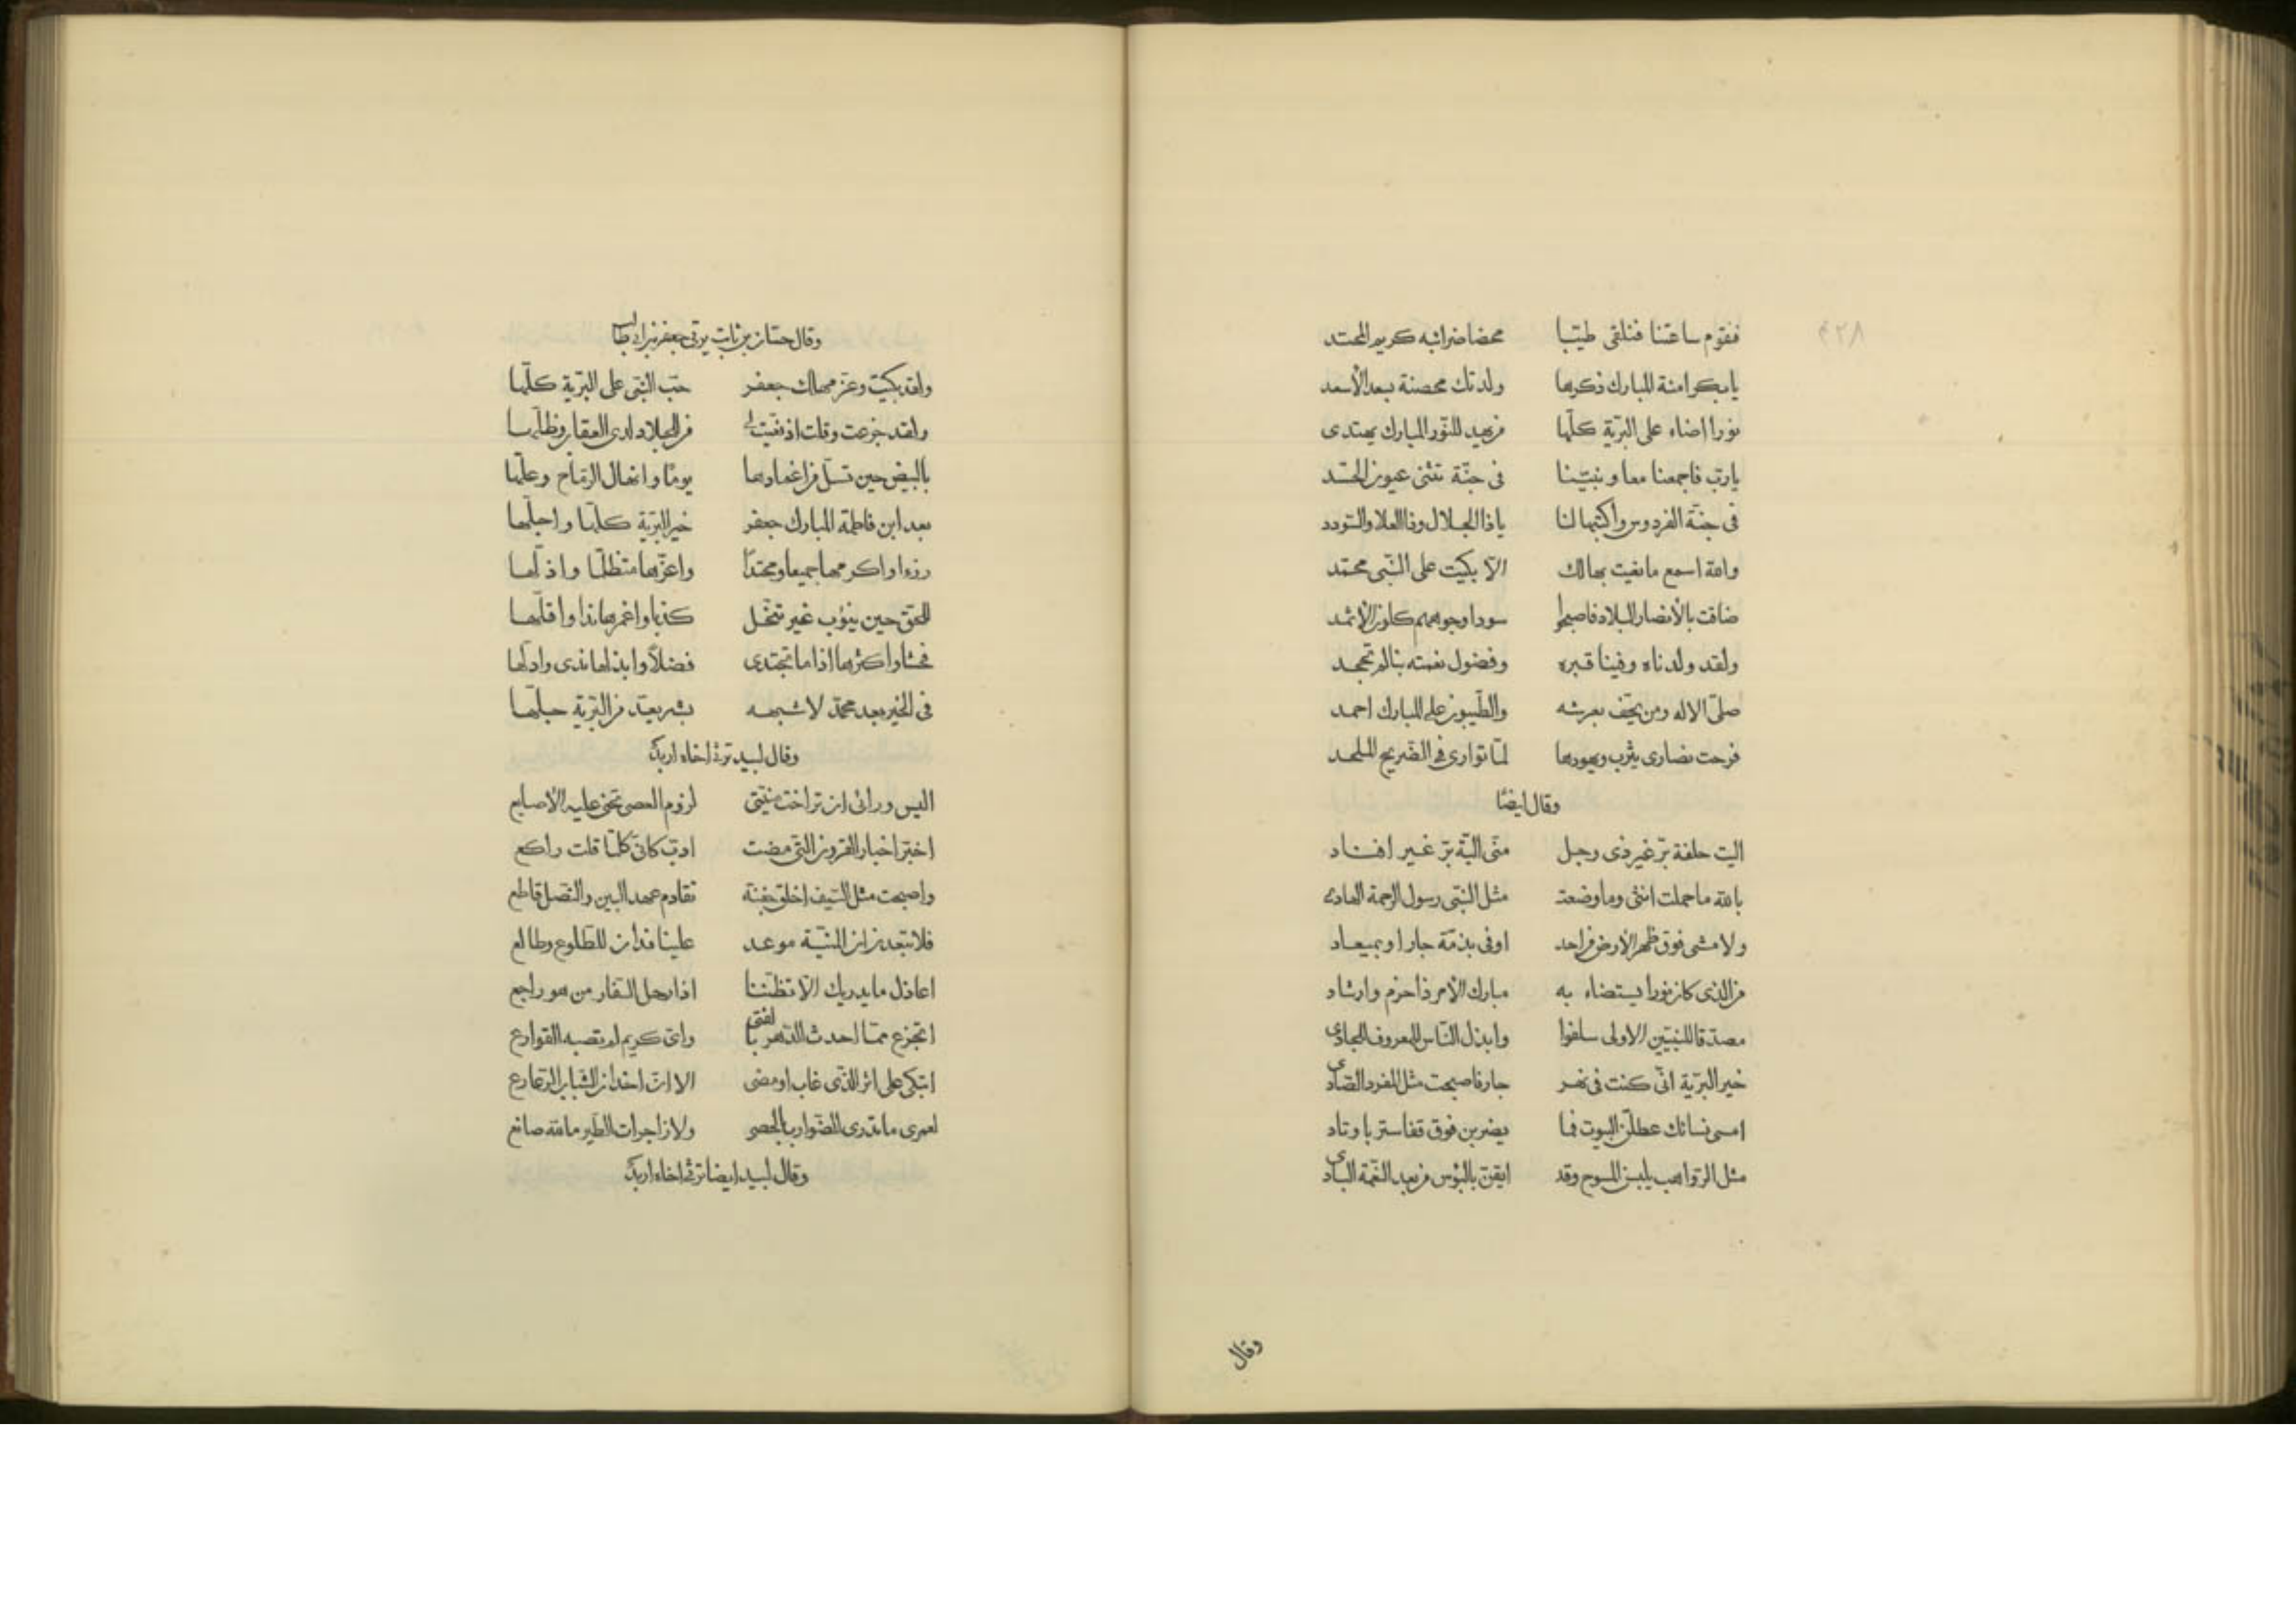 فنقوم ساعتنا فنلقى طيّبا محضا ضرائبه كريم المحتد
يا بكر امنة المبارك ذكرها ولدتك محصنة بسعد الأسعد
نورا اضاء على البريّة كلّها من يهد للنّور المبارك يهتدى
يا ربّ فاجمعنا معا ونبيّنا فى جنّة تثنى عيون الحسّد
فى جنّة الفردوس واكتبها لنا يا ذا الجلال وذا العلا والسّودد
والله اسمع ما بقيت بهالك الّا بكيت على النّبى محمّد
ضاقت بالأنصار البلاد فاصبحوا سودا وجوههم كلون الأثمد
ولقد ولدناه وفينا قبره وفضول نعمته بنا لم تجحد
صلّى الاله ومن يحفّ بعرشه والطّيبون على المبارك احمد
فرحت نصارى يثرب ويهودها لمّا توارى فى الضّريح الملحد
وقال ايضًا
اليت حلفة برّ غير ذى دجل منّى اليّة برّ غير افناد
بالله ما حملت انثى وما وضعت مثل النّبى رسول الرحمة الهادى
ولا مشى فوق ظهر الأرض من احد اوفى بذمّة جار او بميعاد
من الذى كان نورا يستضاء به مبارك الأمر ذا حزم وارشاد
مصدّقا للنبيّين الاولى سلفوا وابذل النّاس للمعروف للجادى
خير البريّة انّى كنت فى نهر جار فاصبحت مثل المفرد الصّادى
امسى نسائك عطلن البيوت فما يضربن فوق قفا ستر باوتاد
مثل الرّواهب يلبسن المسوح وقد ايقنّ بالبؤس من بعد النّعمة البادى
وقال
وقال حسّان بن ثابت يرثى جعفر بن ابى طالب
ولقد بكيت وعزّ مهلك جعفر حبّ النّبى على البريّة كلّها
ولقد جزعت وقلت اذ نعيت لى من للجلاد لدى العقاب وظلّها
بالبيض حين تسلّ من اغمادها يومًا وانهال الرّماح وعلّها
بعد ابن فاطمة المبارك جعفر خير البريّة كلّها واجلّها
رزءا واكرمها جميعا ومحتدًا واعزّها متظلّما واذلّها
للحقّ حين ينوب غير تنحّل كذبا واغمرها ندا واقلّها
فحشا واكثرها اذا ما تجتدى فضلًا وابذلها ندى وادلّها
فى الخير بعد محمّد لا شبهه بشر يعدّ من البريّة جلّها
وقال لبيد يرثى اخاه اربد
اليس ورائى ان تراخت منيّتى لزوم العصى تحنى عليه الأصابع
اخبّر اخبار القرون الّتى مضت ادبّ كانّى كلّما قلت راكع
واصبحت مثل السّيف اخلق جفنه تقادم عهد القين والنّصل قاطع
فلا تبعدن ان المنيّة موعد علينا فدان للطّلوع وطالع
اعاذل ما يدريك الّا تظنّنا اذا رحل السّفار من هو راجع
اتجزع ممّا احدث الدّهر بالفتى واىّ كريم لم تصبه القوارع
اتبكى على اثر الذّى غاب او مضى الا انّ اخدان الشّباب الرّعارع
لعمرى ما تدرى الضّوارب بالحصى ولا زاجرات الطّير ما الله صانع
وقال لبيد ايضا يرثى اخاه اربد